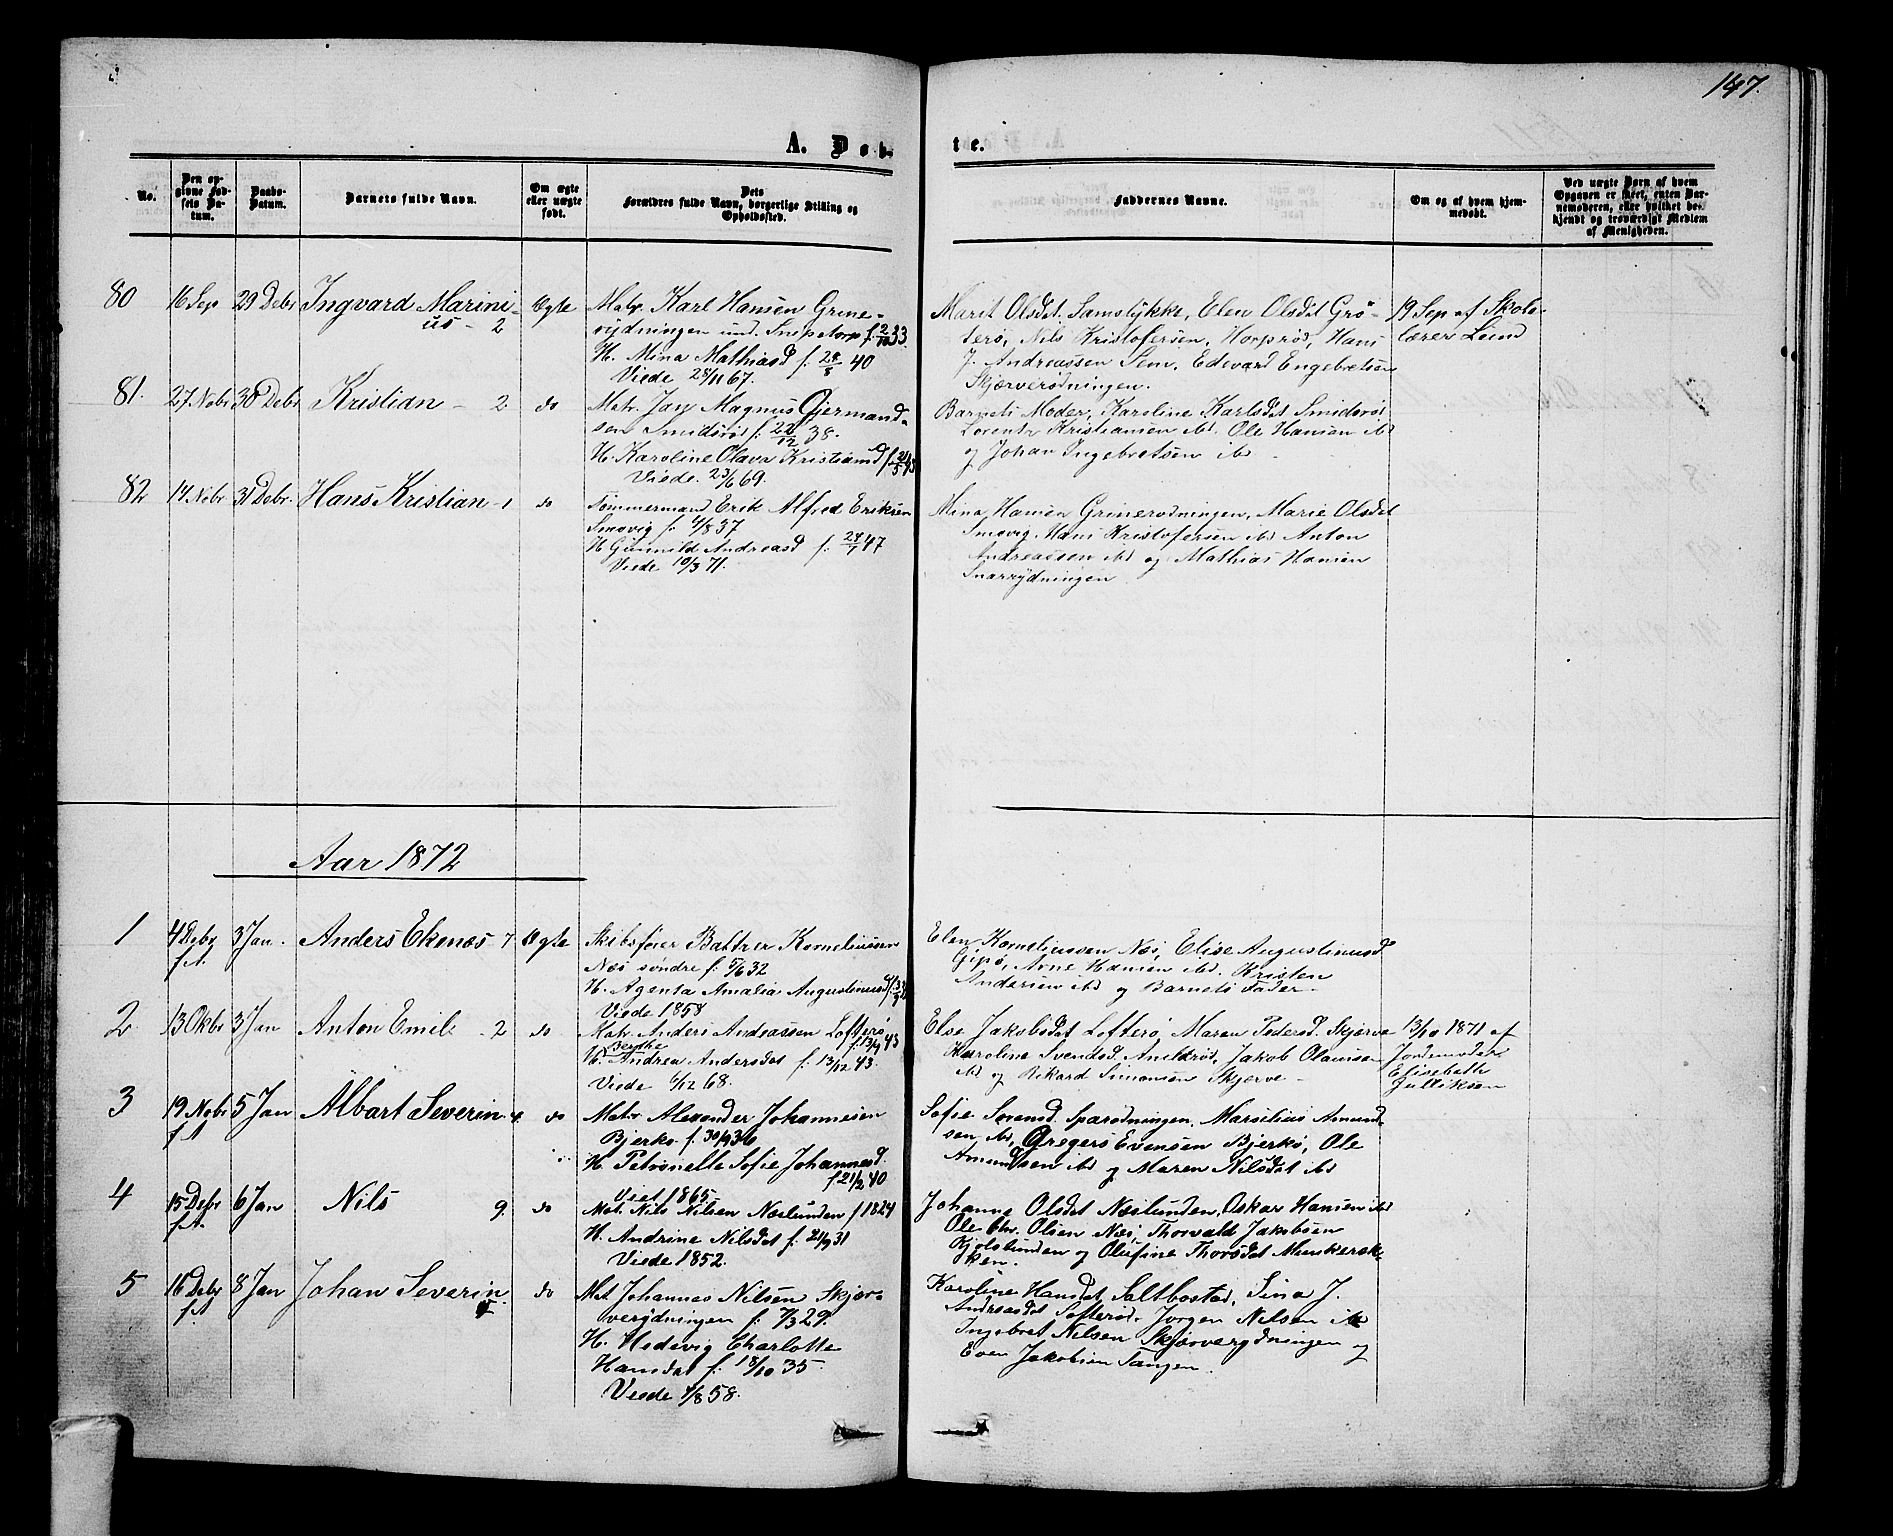 147.
A. Døb-
te.
No.
Den op-
givne Fød-
sels Da-
tum.
Daabs-
Datum.
Barnets fulde Navn.
Om ægte
eller uægte
født.
Dets
Forældres fulde Navn, borgerlige Stilling og
Opholdssted.
Faddernes Navne.
Om og af hvem hjem-
medøbt.
Ved uægte Børn af hvem
Opgaven er skeet, enten Bar-
nemoderen, eller hvilket be-
kjendt og troværdigt Medlem
af Menigheden.
80 16 Sep 29 Debr Ingvard Marini-
us - 2
Ægte
Matr. Karl Hansen Grine-
rydningen und. Sneptorp f. 2/10 33.
H. Mina Mathiasd f. 28/8 40
Viede 28/11 67.
Marit Olsdt. Samslykke, Elen Olsdt Grö-
terö, Nils Kristofersen, Horprød, Hans
J. Andreassen Sem, Edevard Engebretsen
Skjærverödningen.
19 Sep af Skole-
lærer Lund
81. 27 Nobr 30 Debr Kristian - 2 do
Matr. Jay Magnus Gjermand-
sen Smidsröd f. 22/12 38.
H. Karoline Olava Kristiansd f. 21/5 43
Viede. 23/6 69.
Barnets Moder, Karoline Karlsdt Smidsröd
Lorents Kristiansen ibd. Ole Hansen ibd
og Johan Ingebretsen ibd -
82 14 Nobr 31 Debr. Hans Kristian - 1 do
Tömmermand Erik Alfred Eriksen
Snovig f. 4/8 37
H Gunnild Andreasd f. 28/1 47
Viede 10/3 71.
Mina Hansen Grinerödningen, Marie Olsdt
Snovig. Hans Kristofersen ibd Anton
Andreassen ibd og Mathias Hansen
Snarrydningen
Aar 1872
1 4 Debr
f A
3 Jan. Anders Ekenæs - 7 Ægte
Skibsfører Baltzer Kornelius­sen
Næs søndre f. 5/6 32
H. Agenta Amalia Augustinusd f.
Viede 1858
Elen Korneliussen Næs, Elise Augustinusd
Gipö, Arne Hansen ibd. Kristen
Andersen ibd og Barnets Fader -
2 13 Okbr 3 Jan Anton Emil - 2 do
Matr. Anders Andreassen Lofterö
f. 13/9 43
Berthe
H. Andrea Andersdat f. 13/12 43.
Viede 6/12 68.
Else Jakobsdat Lofterö, Maren Pedersd. Skjerve
Karoline Svendsd. Anildröd, Jakob Olaussen
ibd og Rikard Simonsen Skjerve -
13/10 1871 af
Jordemoder
Elisabeth
Gulliksen
3 19 Nobr
f A
5 Jan Albart Severin 4. do
Matr Alexander Johannesen
Bjerkø f. 30/9 36
H Petronelle Sofie Johannesd.
f 21/2 40
Viet 1865.
Sofie Sorensd Sparödningen. Marselius Amund-
sen ibd, Gregers Evensen Bjerkö, Ole
Amundsen ibd og Maren Nilsdat ibd
4 15 Debr
f A.
6 Jan Nils 9. do
Mat. Nils Nilsen Næslunden f 1824
H. Andrine Nilsdat f. 21/9 31
Viede 1852.
Johanne Olsdat Næslunden, Oskar Hansen ibd
Ole Chr. Olsen Næs, Thorvald Jakobsen
Kjolslunden og Olufine Thorsdat Munkerek-
ken.
5 16 Debr
f A
8 Jan Johan Severin do
Mat Johannes Nilsen Skjær-
verödningen f. 7/3 29.
H. Hedevig Charlotte
Hansdat f. 18/10 35
Viede 1/8 58.
Karoline Hansdt Saltbostad, Sina J.
Andreasdat Lofteröd, Jorgen Nilsen ibd
Ingebret Nilsen Skjærverydningen og
Even Jakobsen Tangen.